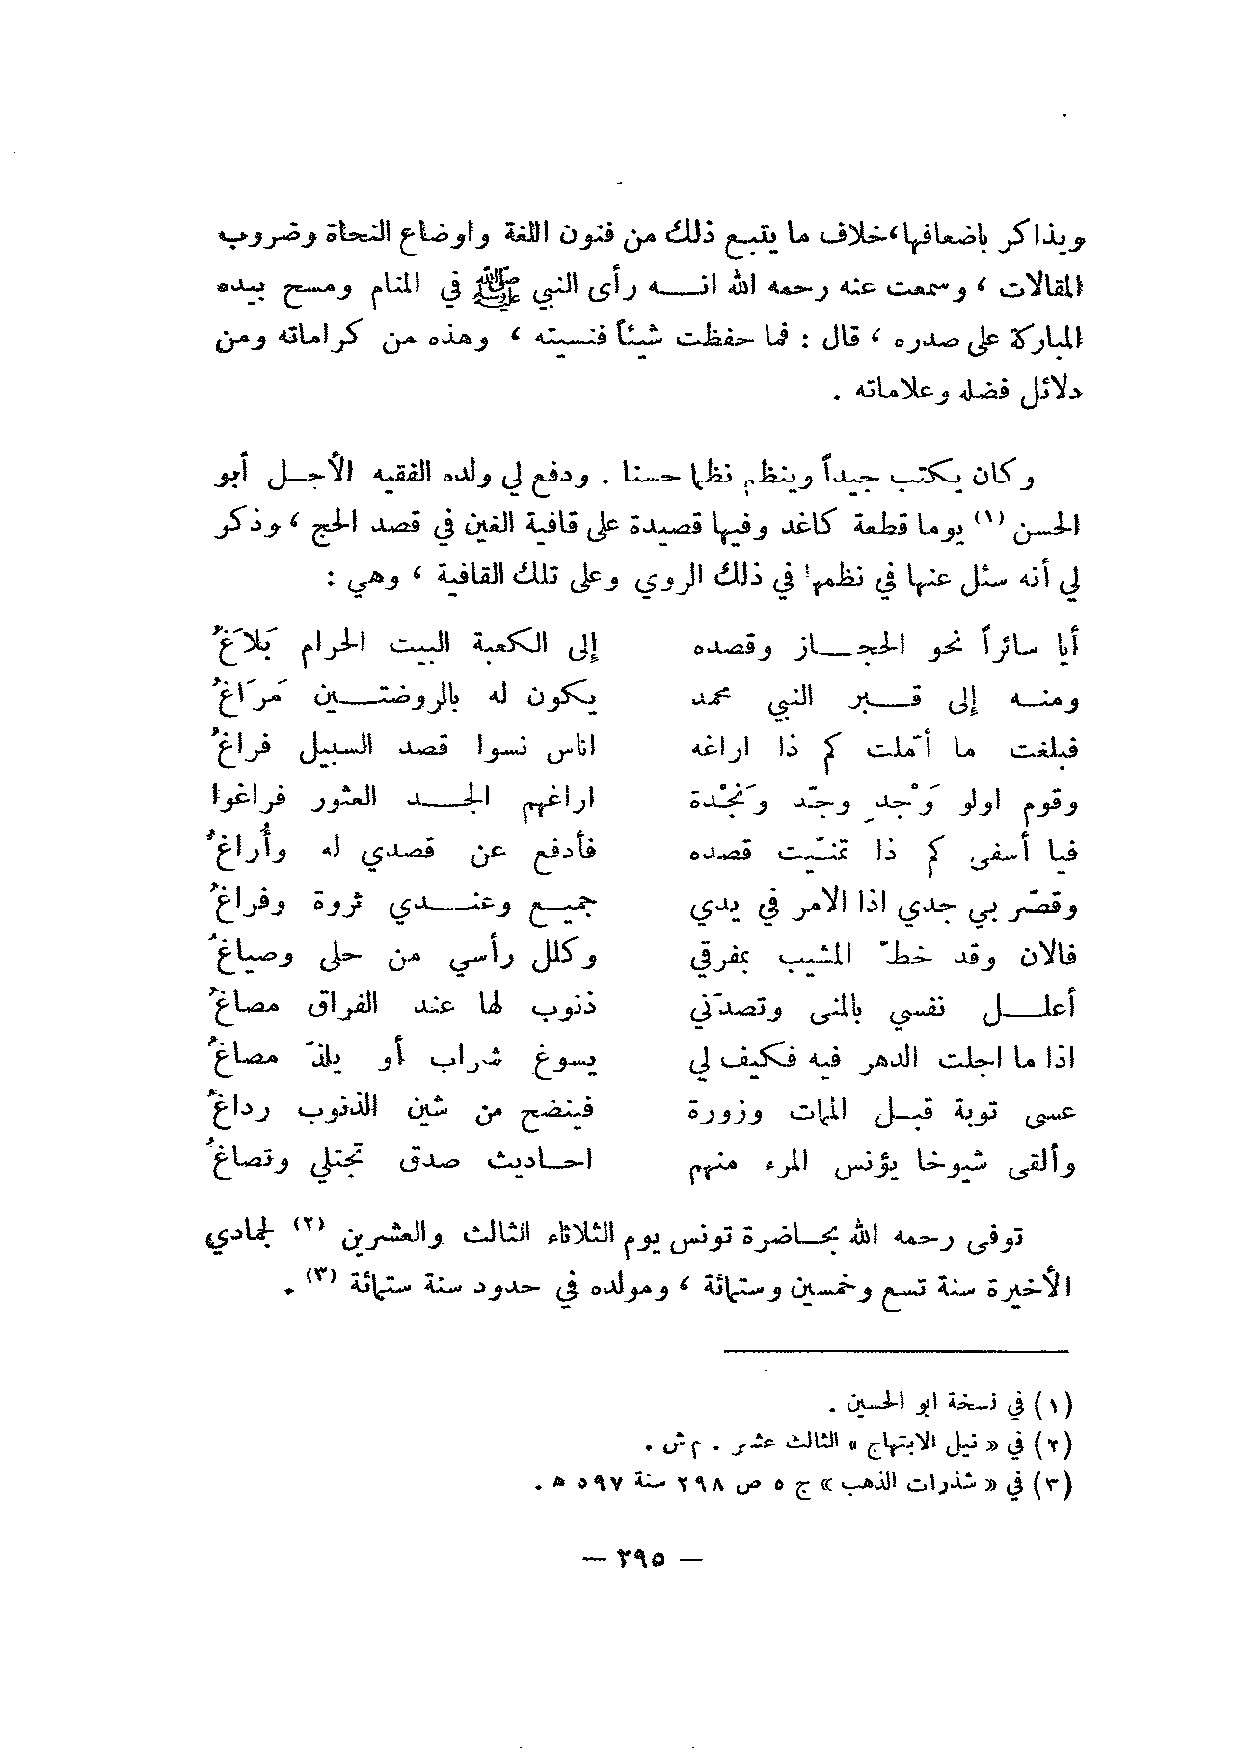 ويذاكر باضعافها، خلاف ما يتبع ذلك من فنون اللغة واوضاع النحاة وضروب
المقالات ، وسمعت عنه رحمه الله انه رأى النبي ﷺ في المنام ومسح بيده
المباركة على صدره ، قال : فما حفظت شيئاً فنسيته ، وهذه من كراماته ومن
دلائل فضله وعلاماته .
وكان يكتب جيداً وينظم نظما حسنا . ودفع لي ولده الفقيه الأجل أبو
الحسن (١) يوما قطعة كاغد وفيها قصيدة على قافية الغين في قصد الحج ، وذكر
لي أنه سئل عنها في نظمها في ذلك الروي وعلى تلك القافية ، وهي :
أيا سائراً نحو الحجاز وقصده إلى الكعبة البيت الحرام بَلاَغُ
ومنه إلى قبر النبي محمد يكون له بالروضتين مَرَاغُ
فبلغت ما أمّلت كم ذا اراغه اناس نسوا قصد السبيل فراغُ
وقوم اولو وَجْدٍ وجِدّ ونَجْدة اراغهم الجد العثور فراغوا
فيا أسفى كم ذا تمنّيت قصده فأدفع عن قصدي له وأُراغُ
وقصّر بي جدي اذا الامر في يدي جميع وعندي ثروة وفراغُ
فالان وقد خطّ المشيب بمفرقي وكلل رأسي من حلى وصياغُ
أعلل نفسي بالمنى وتصدّني ذنوب لها عند الفراق مصاغُ
اذا ما اجلت الدهر فيه فكيف لي يسوغ شراب أو يلذّ مصاغُ
عسى توبة قبل الممات وزورة فينضح من شين الذنوب رداغُ
وألقى شيوخا يؤنس المرء منهم احاديث صدق تجتلي وتصاغُ
توفى رحمه الله بحاضرة تونس يوم الثلاثاء الثالث والعشرين (٢) لجمادي
الأخيرة سنة تسع وخمسين وستمائة ، ومولده في حدود سنة ستمائة (٣) .
(١) في نسخة ابو الحسين .
(٢) في « نيل الابتهاج » الثالث عشر . م ش .
(٣) في « شذرات الذهب » ج ٥ ص ٢٩٨ سنة ٥٩٧ ه .
— ٢٩٥ —